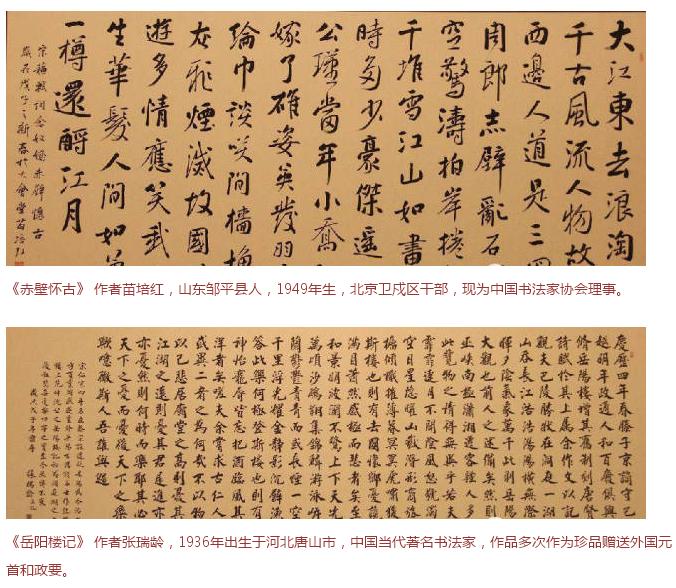 大江東去浪淘
千古風流人物故
西邊人道是三
周郎赤壁亂石
空驚濤拍岸捲
千堆雪江山如畫
時多少豪傑遥
公瑾當年小喬
嫁了雄姿英發羽
綸巾談笑間檣櫓
灰飛煙滅故國
遊多情應笑我
生華髮人間如夢
一樽還酹江月
宋蘇軾詞念奴嬌赤壁懷古
歲在戊子之新春於大會堂苗培红
《赤壁怀古》 作者苗培红，山东邹平县人，1949年生，北京卫戍区干部，现为中国书法家协会理事。
慶曆四年春滕子京謫守巴
越明年政通人和百廢俱興
脩岳陽樓增其舊制刻唐賢
詩賦於其上屬余作文以記
觀夫巴陵勝狀在洞庭一湖
山吞長江浩浩湯湯橫無際
暉夕陰氣象萬千此則岳陽
大觀也前人之述備矣然則
巫峽南極瀟湘遷客騷人多
此覽物之情得無異乎若夫
霏霏連月不開陰風怒號濁
空日星隱耀山嶽潛形商旅
檣傾楫摧薄暮冥冥虎嘯猿
斯樓也則有去國懷鄉憂讒
滿目蕭然感極而悲者矣至
和景明波瀾不驚上下天光
萬頃沙鷗翔集錦鱗游泳岸
蘭郁郁青青而或長煙一空
千里浮光耀金靜影沉璧漁
答此樂何極登斯樓也則有
神怡寵辱皆忘把酒臨風其
洋者矣嗟夫余嘗求古仁人
或異二者之為何哉不以物
以己悲居廟堂之高則憂其
江湖之遠則憂其君是進亦
亦憂然則何時而樂耶其必
天下之憂而憂後天下之樂
歟噫微斯人吾誰與歸
《岳阳楼记》 作者张瑞龄，1936年出生于河北唐山市，中国当代著名书法家，作品多次作为珍品赠送外国元
首和政要。